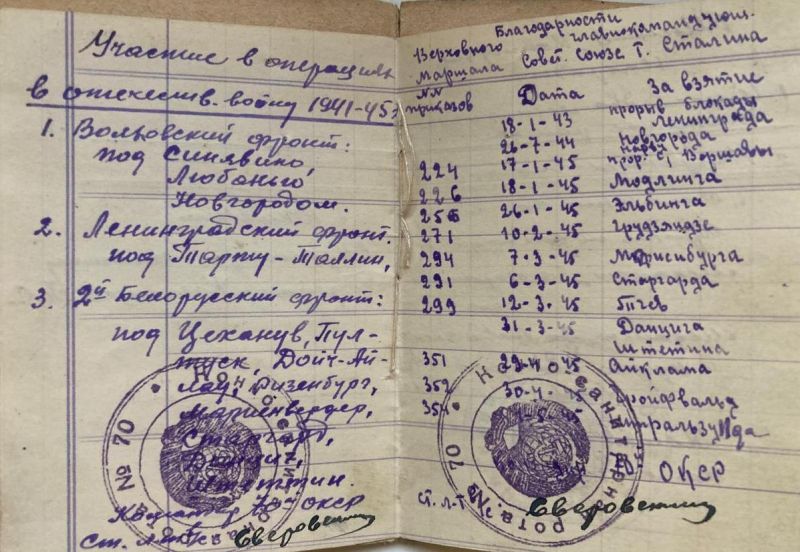 Участие в операциях
в отечествен. войну 1941-45г
1. Волховский фронт:
под Синявино,
Любанью,
Новгородом.
2. Ленинградский фронт.
под Тарту-Таллин,
3. 2й Белорусский фронт:
под Цеханув, Пул-
туск, Дойч-Ай-
лау, Ризенбург,
Мариенвердер,
Старгард,
Данциг,
Штеттин.
ОКСР
Ст. л-т
Сверовский
№ 70
Благодарности
Верховного главнокомандующ.
Маршала Совет. Союзе т. Сталина
NN приказов Дата За взятие
18-1-43 прорыв блокады Ленинграда
26-7-44 Новгорода
224 17-1-45 прор. Варшавы
226 18-1-45 Модлинга
256 26-1-45 Эльбинга
271 10-2-45 Грудзяндзе
294 7-3-45 Марисибурга
291 6-3-45 Старгарда
299 12-3-45 Тчев
31-3-45 Данцига
Штетина
351 29-4-45 Айклама
359 30-4- Гройфвальд
354 Штральзунда
70 ОКСР
ст. л-т Сверовский
Санитарн рота № 70